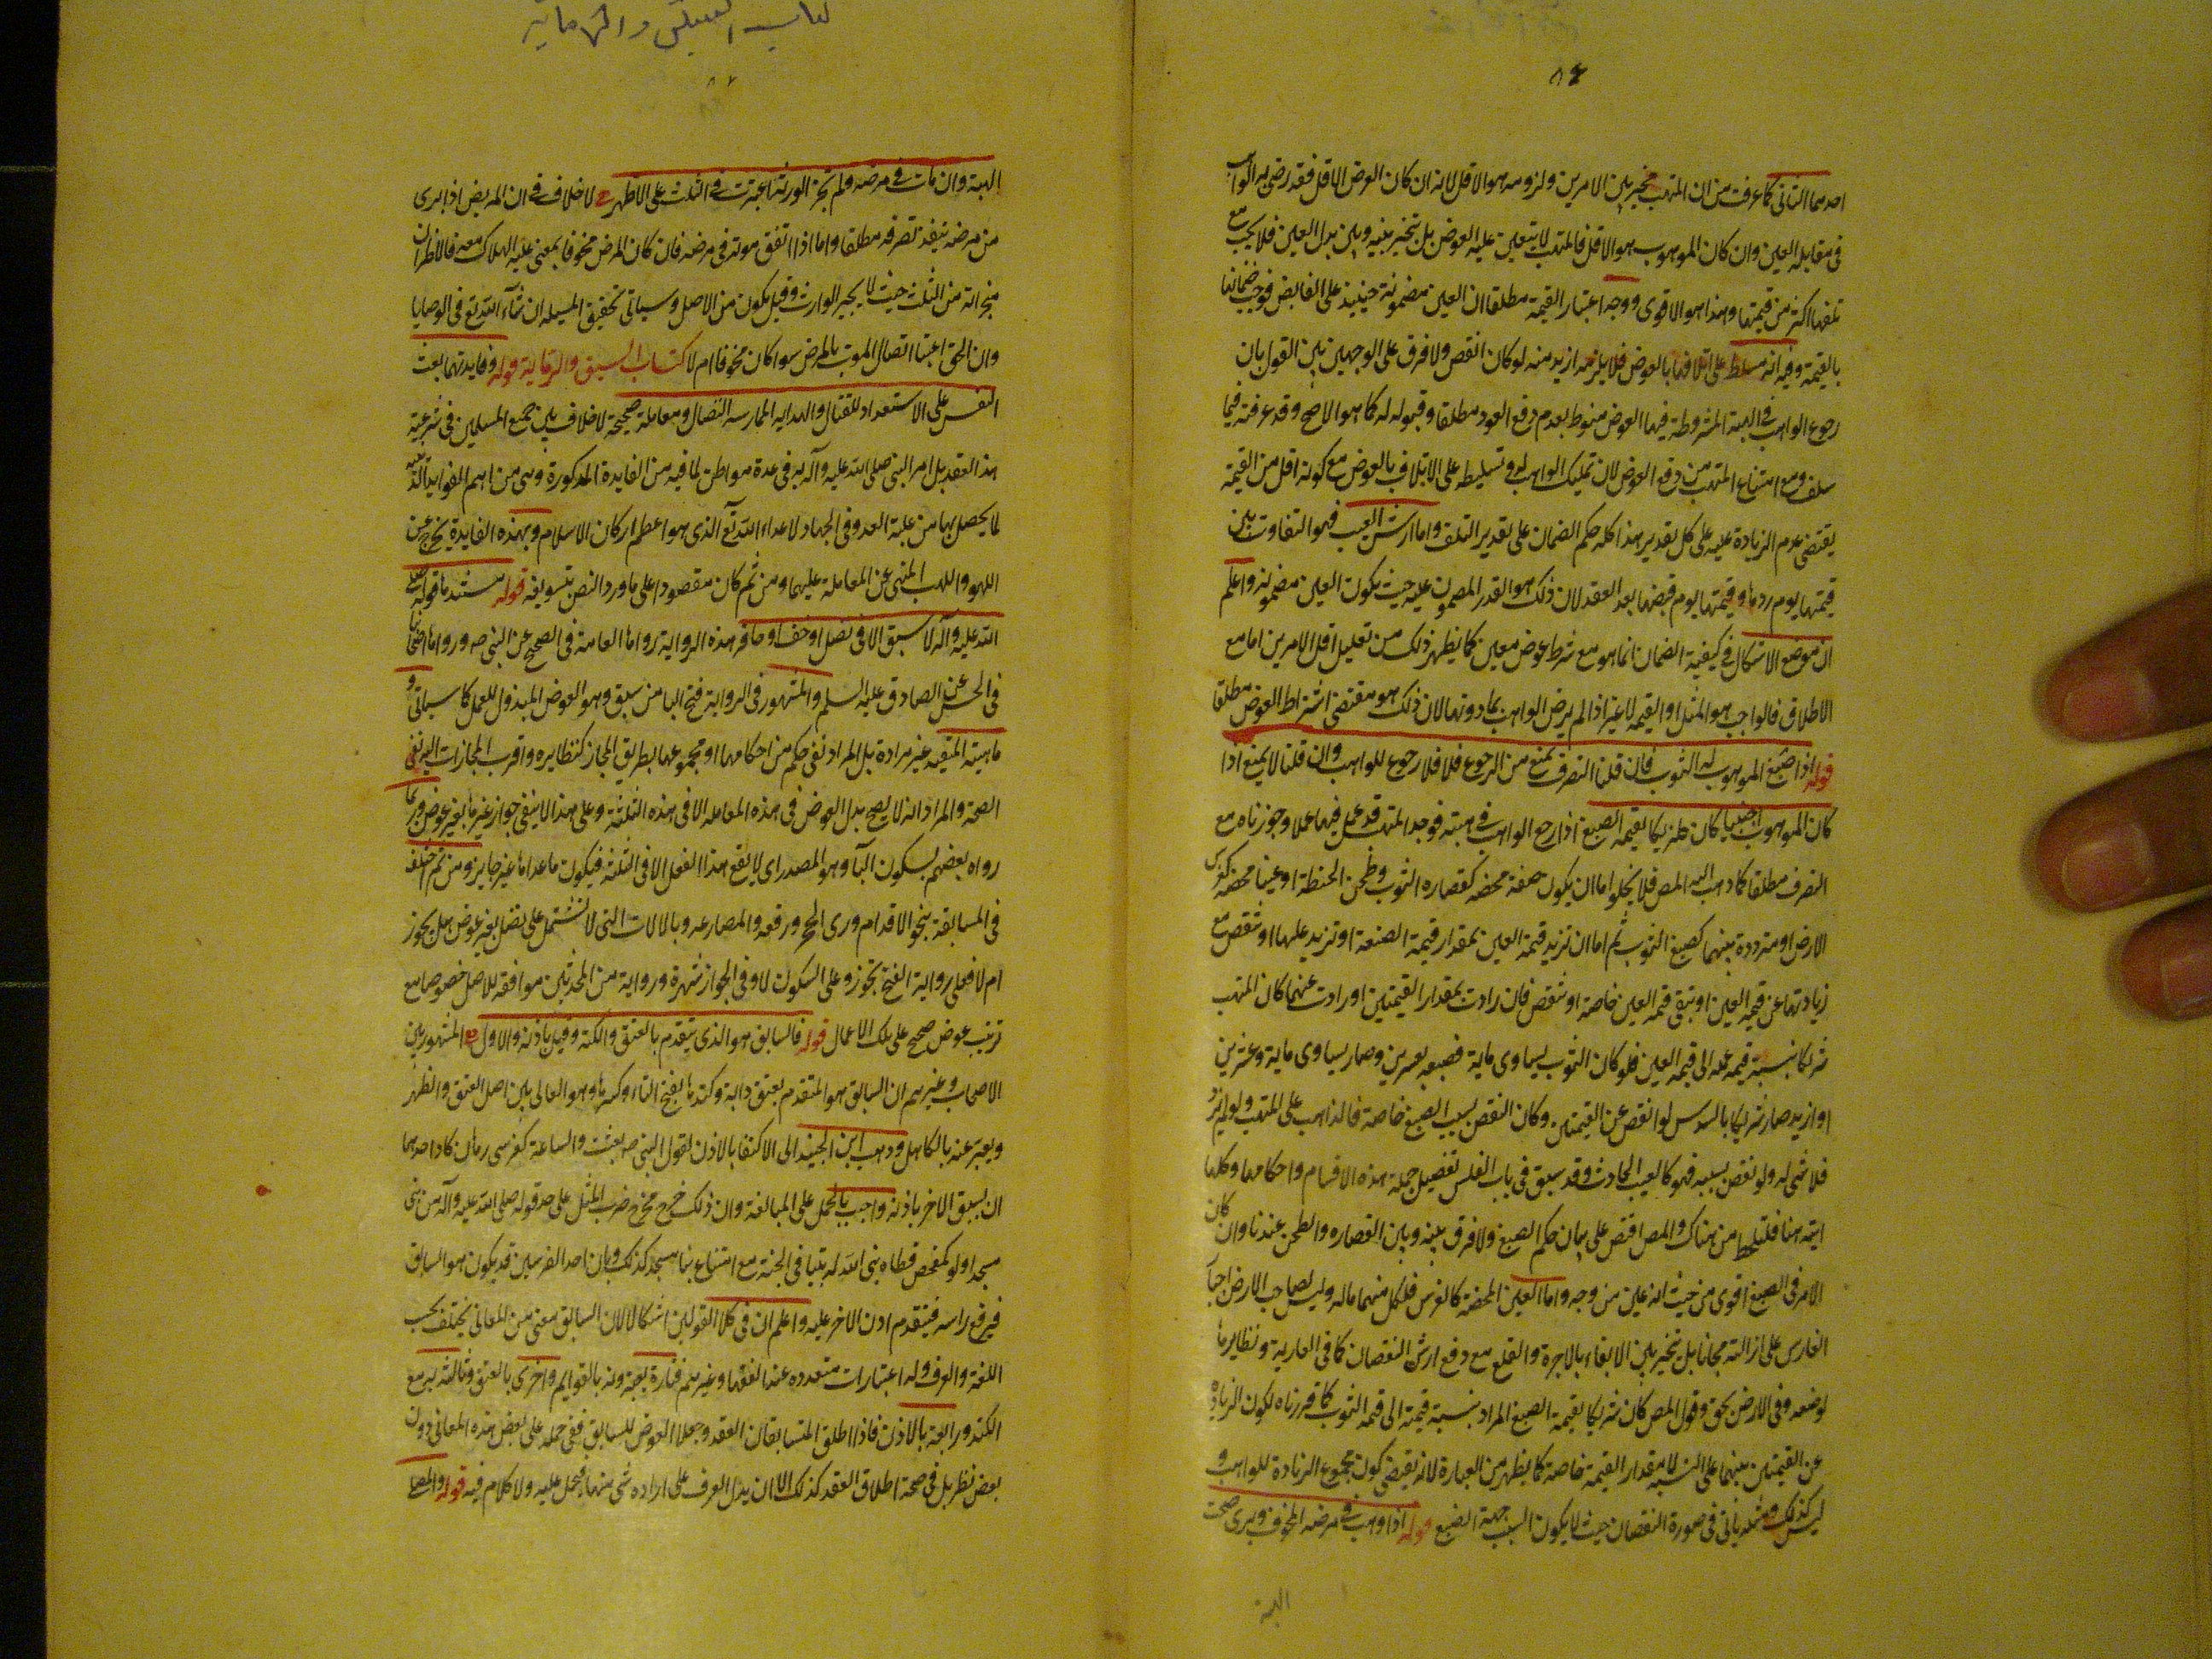 ۸۴
احدهما الثاني كما عرفت من ان المتهب مخير بين الامرين ولزومه هو الاقل لانه ان كان العوض الاقل فقد رضي به الواهب
في مقابله العين وان كان الموهوب هو الاقل فالمتهب لا يتعين عليه العوض بل يتخير بينه وبين بذل العين فلا يجب مع
تلفها اكثر من قيمتها وهذا هو الاقوى ووجه اعتبار القيمة مطلقا ان العين مضمونة حينئذ على القابض فوجب ضمانها
بالقيمة وفيه انه مسلط على اتلافها بالعوض فلا يلزمه ازيد منه لو كان انقص ولا فرق على الوجهين بين القول بان
رجوع الواهب في الهبة المشروطة فيها العوض منوط بعدم دفع العود مطلقا وقبوله له كما هو الاصح وقد عرفته فيما
سلف ومع امتناع المتهب من دفع العوض لان تمليك الواهب له وتسليطه على الاتلاف بالعوض مع كونه اقل من القيمة
يقتضى عدم الزيادة عليه على كل تقدير هذا كله حكم الضمان على تقدير التلف واما ارش العيب فهو التفاوت بين
قيمتها يوم ردها وقيمتها يوم قبضها بعد العقد لان ذلك هو القدر المضمون عليه حيث يكون العين مضمونة واعلم
ان موضع الاشكال في كيفية الضمان انما هو مع شرط عوض معين كما يظهر ذلك من تعليل اقل الامرين اما مع
الاطلاق فالواجب هو المثل او القيمه لا غير اذا لم يرض الواهب بما دونهما لان ذلك هو مقتضى اشتراط العوض مطلقا
قوله اذا صبغ الموهوب له الثوب فان قلنا التصرف يمنع من الرجوع فلا فلا رجوع للواهب وان قلنا لا يمنع اذا
كان الموهوب اجنبيا كان شريكا بقيمه الصبغ اذا رجع الواهب في هبته فوجد المتهب قد عمل فيها عملا وجوزناه مع
التصرف مطلقا كما ذهب اليه المص فلا يخلوا اما ان يكون صفة محضه كقصاره الثوب وطحن الحنطة او عينا محضة كغرس
الارض او مترددة بينهما كصبغ الثوب ثم اما ان تزيد قيمة العين بمقدار قيمة الصنعة او تزيد عليها او تنقص مع
زيادتها عن قيمة العين او تبقى قيمه العين خاصة او تنقص فان زادت بمقدار القيمتين او زادت عنهما كان المتهب
شريكا بنسبة قيمه عمله الى قيمه العين فلو كان الثوب يساوى ماية فصبغه بعشرين وصار يساوى ماية وعشرين
او ازيد صار شريكا بالسدس لو انقص عن القيمتين وكان النقص بسبب الصبغ خاصة فالذاهب على المتهب ولو لم يزد
فلا شى له ولو نقص بسببه فهو كالعيب الحادث وقد سبق في باب الفلس تفصيل جملة هذه الاقسام واحكامها وكلها
اتية هنا فلتلحظ من هناك والمص اقتصر على بيان حكم الصبغ ولا فرق بينه وبين القصاره والطحن عندنا وان كان
الامر في الصبغ اقوى من حيث انه عين من وجه واما العين المحضة كالغرس فلكل منهما ماله وليس لصاحب الارض اجبار
الغارس على ازالته مجانا بل يتخير بين الابقاء بالاجرة والقلع مع دفع ارش النقصان كما في العارية ونظايرها
لوضعه وفي الارض بحق وقول المص كان شريكا بقيمة الصبغ المراد بنسبة قيمته الى قيمه الثوب كما قررناه لكون الزيادة
عن القيمتين بينهما على النسبه لا بمقدار القيمة خاصة كما يظهر من العبارة لانه يقتضي كون مجموع الزيادة للواهب و
ليس كذلك ومثله ياتي في صورة النقصان حيث لا يكون السبب جهة الصبغ قوله اذا وهب في مرضه المخوف وبرى صحت
الهبة
الهبة وان مات في مرضه ولم تجز الورثة اعتبرت في الثلث على الاظهر لا خلاف في ان المريض اذا برى
من مرضه ينفذ تصرفه مطلقا واما اذا اتفق موته في مرضه فان كان المرض مخوفا بمعنى غلبه الهلاك معه فالاظهر ان
منجزاته من الثلث حيث لا يجيز الوارث وقيل يكون من الاصل وسياتى تحقيق المسيله ان شاء الله تع في الوصايا
وان الحق اعتبار اتصال الموت بالمرض سوا كان مخوفا ام لا كتاب السبق والرماية قوله وفايدتهما بعث
النفس على الاستعداد للقتال والهداية لممارسه النضال ومعاملة صحيحة لا خلاف بين جميع المسلمين في شرعية
هذا العقد بل امر النبي صلى الله عليه وآله به في عدة مواطن لما فيه من الفايدة المذكورة وهي من اهم الفوايد الدينيه
لما يحصل بها من غلبة العدو في الجهاد لاعداء الله تع الذي هو اعظم اركان الاسلام وبهذه الفايدة يخرج عن
اللهو واللعب المنهي عن المعاملة عليهما ومن ثم كان مقصودا على ما ورد النص بتسويغه قوله مستندها قوله صلى
الله عليه وآله لا سبق الا في نصل او خف او حافر هذه الرواية رواها العامة في الصحيح عن النبي ص ورواها اصحابنا
في الحسن عن الصادق عليه السلم والمشهور في الرواية فتح البا من سبق وهو العوض المبذول للعمل كما سياتي و
ماهيته المنفيه غير مرادة بل المراد نفي حكم من احكامها او مجموعها بطريق المجاز كنظايره واقرب المجازات اليه نفي
الصحة والمراد انه لا يصح بذل العوض في هذه المعامله الا في هذه الثلثة وعلى هذا لا ينفي جواز غيرها بغير عوض وربما
رواه بعضهم بسكون البآ وهو المصدر اى لا يقع هذا الفعل الا في الثلثة فيكون ما عداها غير جايز ومن ثم اختلف
في المسابقة بنحو الاقدام ورمى الحجر ورفعه والمصارعه وبالالات التي لا تشتمل على نصل بغير عوض هل يجوز
ام لا فعلى رواية الفتح تجوز وعلى السكون لا وفي الجواز شهرة ورواية من المحدثين موافقة للاصل خصوصا مع
ترتب عوض صحيح على تلك الاعمال قوله فالسابق هو الذي يتقدم بالعنق والكتد وقيل باذنه والاول المشهور بين
الاصحاب وغيرهم ان السابق هو المتقدم بعنق دابته وكتدها بفتح التاء وكسرها وهو العالي بين اصل العنق والظهر
ويعبر عنه بالكاهل وذهب ابن الجنيد الى الاكتفا بالاذن لقول النبي ص بعثت والساعة كفرسى رهان كاد احدهما
ان يسبق الاخر باذنه واجيب بالحمل على المبالغة وان ذلك خرج مخرج ضرب المثل على حد قوله صلى الله عليه وآله من بنى
مسجدا ولو كمفحص قطاه بنى الله له بيتا في الجنة مع امتناع بنا مسجد كذلك وبان احد الفرسين قد يكون هو السابق
فيرفع راسه فيتقدم اذن الاخر عليه واعلم ان في كلا القولين اشكالا لان السابق معنى من المعاني يختلف بحسب
اللغة والعرف وله اعتبارات متعدده عند الفقها وغيرهم فتارة يعتبرونه بالقوايم واخرى بالعنق وثالثه به مع
الكتد ورابعة بالاذن فاذا اطلق المتسابقان العقد وجعلا العوض للسابق ففي حمله على بعض هذه المعاني دون
بعض نظر بل في صحة اطلاق العقد كذلك الا ان يدل العرف على اراده شى منها فيحمل عليه ولا كلام فيه قوله والمصلى